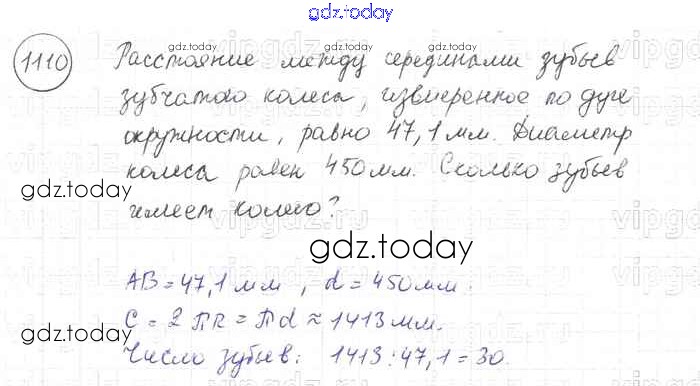 gdz.today
1110 Расстояние между серединами зубьев
зубчатого колеса, измеренное по дуге
окружности, равно 47,1 мм. Диаметр
колеса равен 450 мм. Сколько зубьев
имеет колесо?
gdz.today
gdz.today
gdz.today
gdz.today
gdz.today
AB = 47,1 мм, d = 450 мм.
C = 2πR = πd ≈ 1413 мм.
Число зубьев: 1413 : 47,1 = 30.
gdz.today
gdz.today
gdz.today